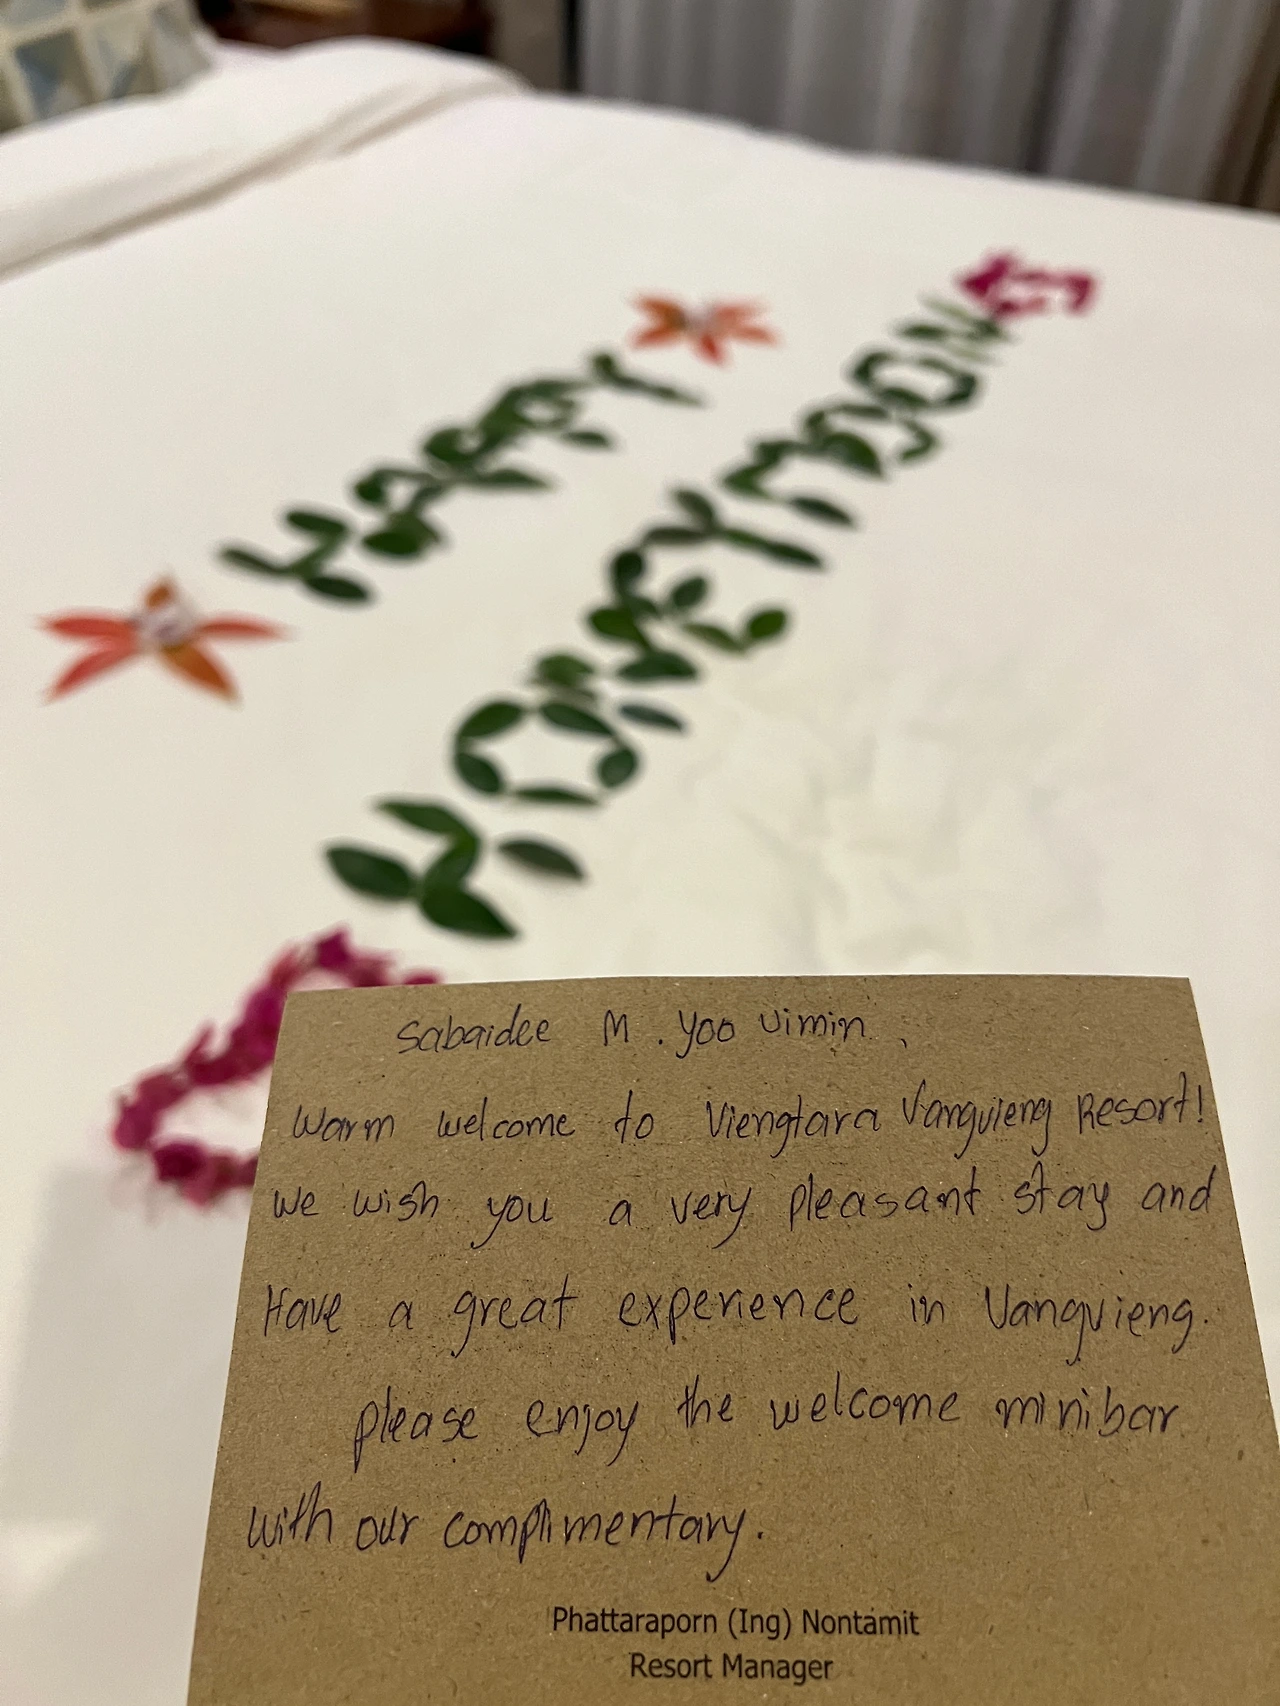 HAPPY
HONEYMOON
Sabaidee M. Yoo Uimin,
Warm welcome to Viengtara Vangvieng Resort!
We wish you a very pleasant stay and
Have a great experience in Vangvieng.
please enjoy the welcome minibar
with our complimentary.
Phattaraporn (Ing) Nontamit
Resort Manager